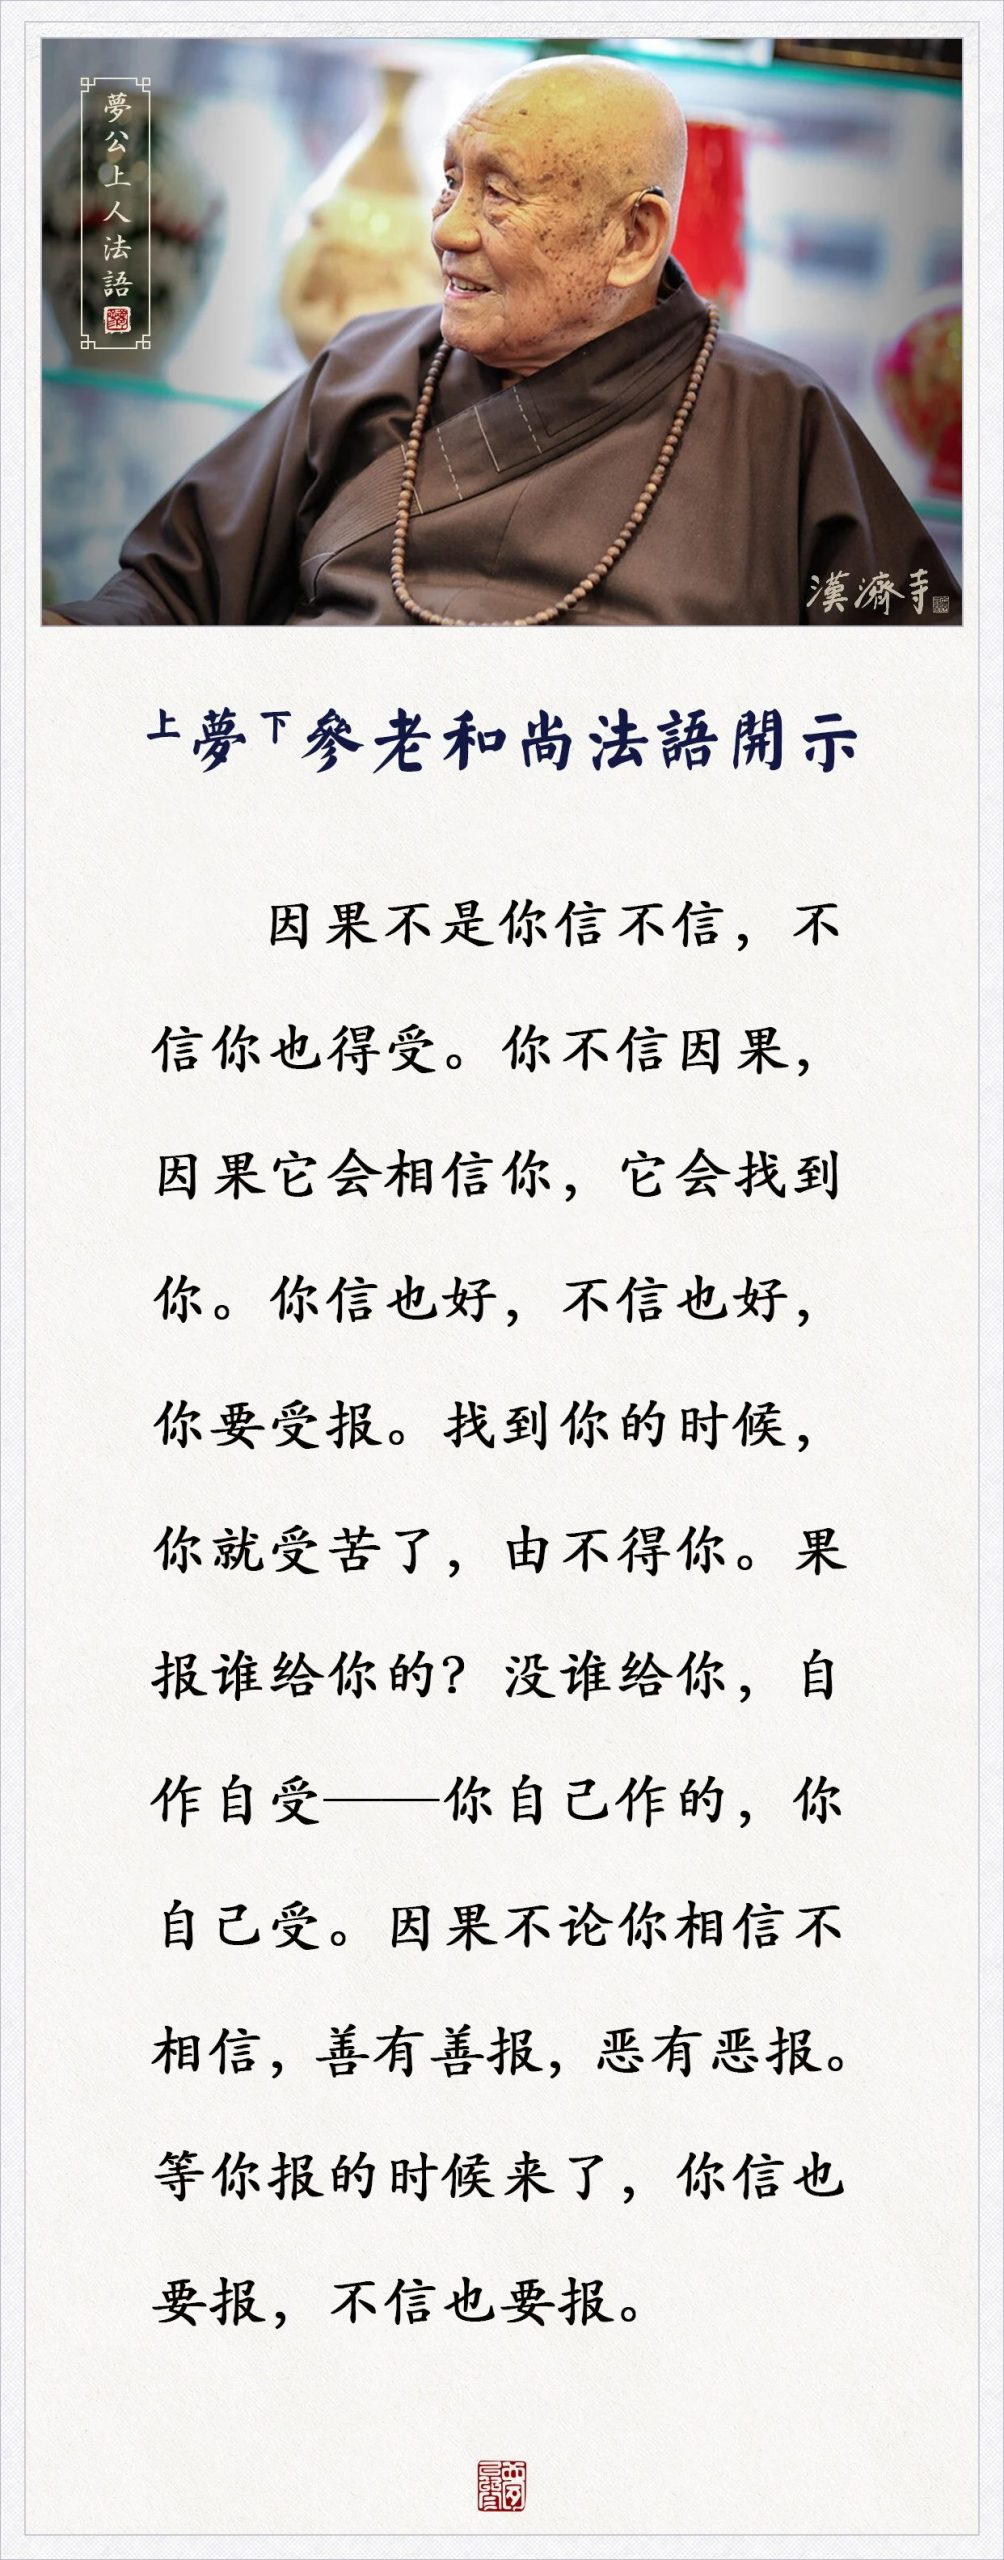 夢公上人法語
漢濟寺
上夢下參老和尚法語開示
因果不是你信不信，不
信你也得受。你不信因果，
因果它会相信你，它会找到
你。你信也好，不信也好，
你要受报。找到你的时候，
你就受苦了，由不得你。果
报谁给你的？没谁给你，自
作自受——你自己作的，你
自己受。因果不论你相信不
相信，善有善报，恶有恶报。
等你报的时候来了，你信也
要报，不信也要报。